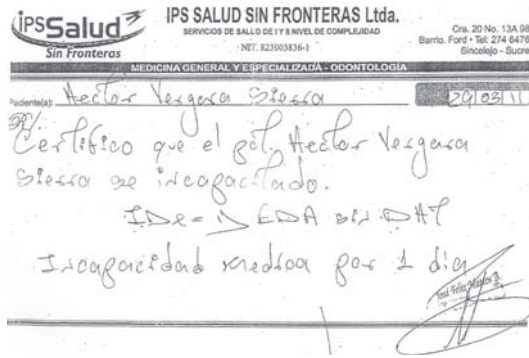 IPSSalud
Sin Fronteras
IPS SALUD SIN FRONTERAS Ltda.
SERVICIOS DE SALUD DE I Y II NIVEL DE COMPLEJIDAD
NIT. 823003836-1
Cra. 20 No. 13A 98
Barrio. Ford • Tel: 274 6476
Sincelejo - Sucre
MEDICINA GENERAL Y ESPECIALIZADA - ODONTOLOGIA
Paciente(a): Hector Vergara Sierra 29/03/11
Certifico que el pct. Hector Vergara
Sierra se incapacitado.
IDx = EDA sin DHT
Incapacidad medica por 1 dia
José Feliz